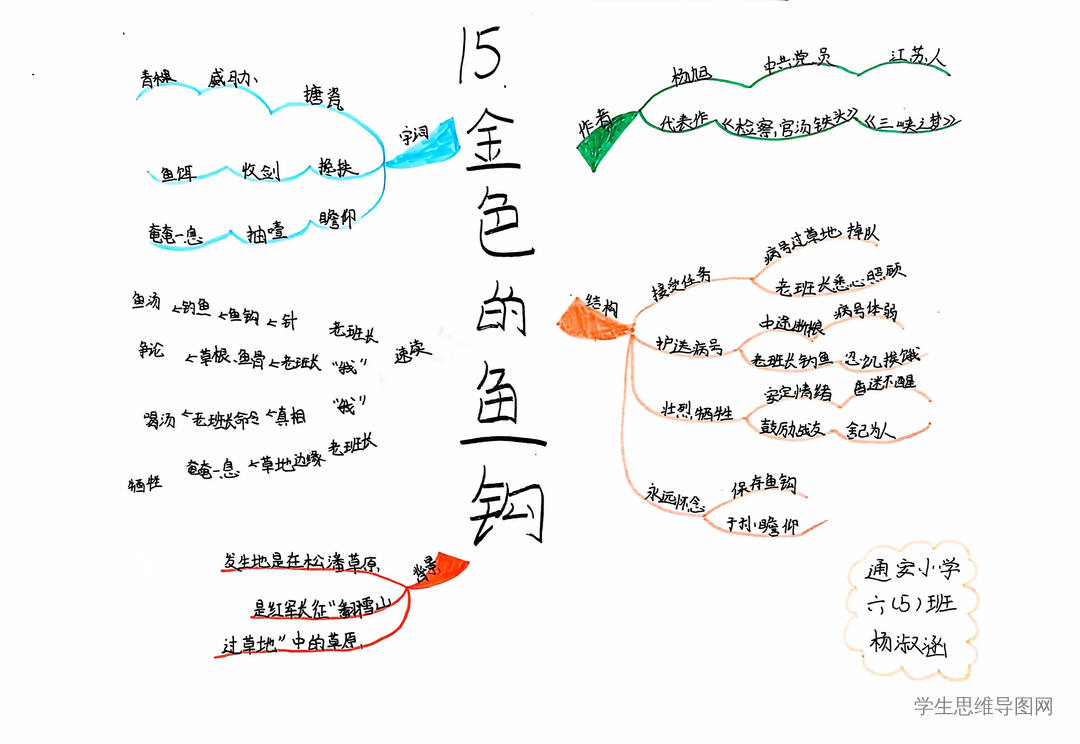 15
金色的鱼钩
字词
搪瓷
威胁
青稞
搀扶
收剑
鱼饵
瞻仰
抽噎
奄奄一息
作者
杨旭
中共党员
江苏人
代表作
《检察官汤铁头》
《三峡之梦》
结构
接受任务
病号过草地 掉队
老班长悉心照顾
护送病号
中途断粮
病号体弱
老班长钓鱼
忍饥挨饿
壮烈牺牲
安定情绪
昏迷不醒
鼓励战友
舍己为人
永远怀念
保存鱼钩
瞻仰
速读
老班长
针
鱼钩
钓鱼
鱼汤
"我"
老班长
草根、鱼骨
争论
"我"
真相
老班长命令
喝汤
老班长
草地边缘
奄奄一息
牺牲
背景
发生地是在松潘草原,
是红军长征"翻雪山
过草地"中的草原,
通安小学
六(5)班
杨淑涵
学生思维导图网